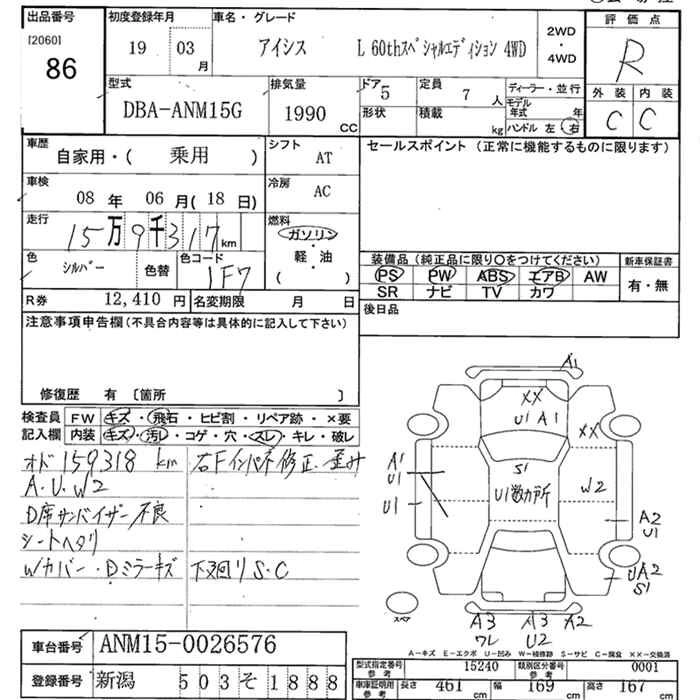 出品番号 初度登録年月 車名・グレード 評価点
[2060] 86 19 03月 アイシス L 60thスペシャルエディション 4WD 2WD・4WD R
型式 排気量 ドア 5 定員 7人 ディーラー・並行 外装 内装
DBA-ANM15G 1990cc 形状 積載 kg モデル年式 年 ハンドル 左・右 C C
車歴 自家用・( 乗用 ) シフト AT セールスポイント(正常に機能するものに限ります)
車検 08年 06月(18日) 冷房 AC
走行 15万9千317km 燃料 ガソリン・軽・油( )
色 シルバー 色替 色コード 1F7 装備品(純正品に限り○をつけてください) 新車保証書
PS PW ABS エアB AW 有・無
SR ナビ TV カワ
R券 12,410円 名変期限 月 日 後日品
注意事項申告欄(不具合内容等は具体的に記入して下さい)
修復歴 有 〔箇所 〕
検査員 FW キズ・飛石・ヒビ割・リペア跡・×要
記入欄 内装 キズ・汚レ・コゲ・穴・スレ・キレ・破レ
オド159318km 右Fインパネ修正、歪み
A.U.W2
D席サンバイザー不良
シートヘタリ
Wカバー・Dミラーキズ 下廻りS.C
A1
XX
U1 A1
XX
S1
A1
U1
U1
U1数カ所
W2
A2
U1
UA2
S1
スペア
A3 A3 A2
ワレ U2
A-キズ E-エクボ U-凹み W-補修跡 S-サビ C-腐食 XX-交換済
車台番号 ANM15-0026576
型式指定番号 参考 15240 類別区分番号 参考 0001
登録番号 新潟 503 そ 1888
車庫証明用 参考 長さ 461cm 幅 169cm 高さ 167cm